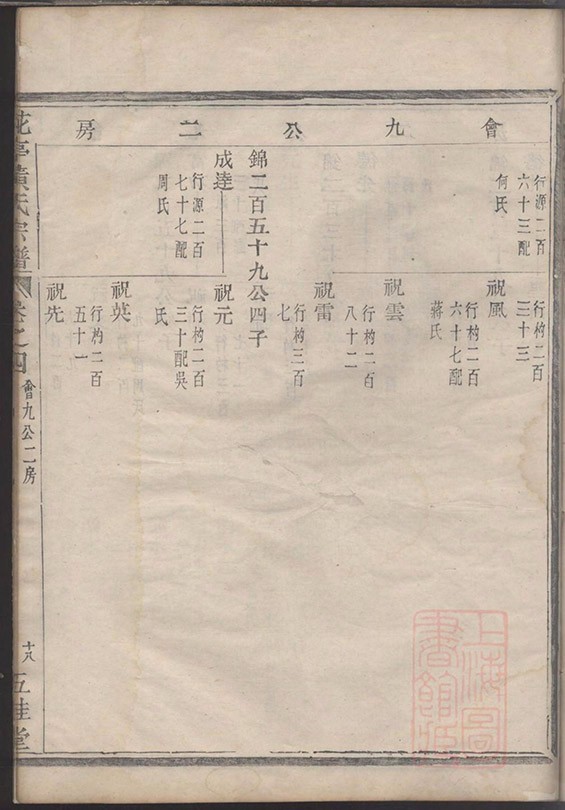 會九公二房
行源二百
六十三配
何氏
行杓二百
三十三
祝風
行杓二百
六十七配
蔣氏
祝雲
行杓二百
八十二
祝雷
行杓三百
七
錦二百五十九公四子
成逹
行源二百
七十七配
周氏
祝元
行杓二百
三十配吳
氏
祝英
行杓二百
五十一
祝先
花亭黃氏宗譜
卷之四
會九公二房
十八
五桂堂
上海圖書館藏